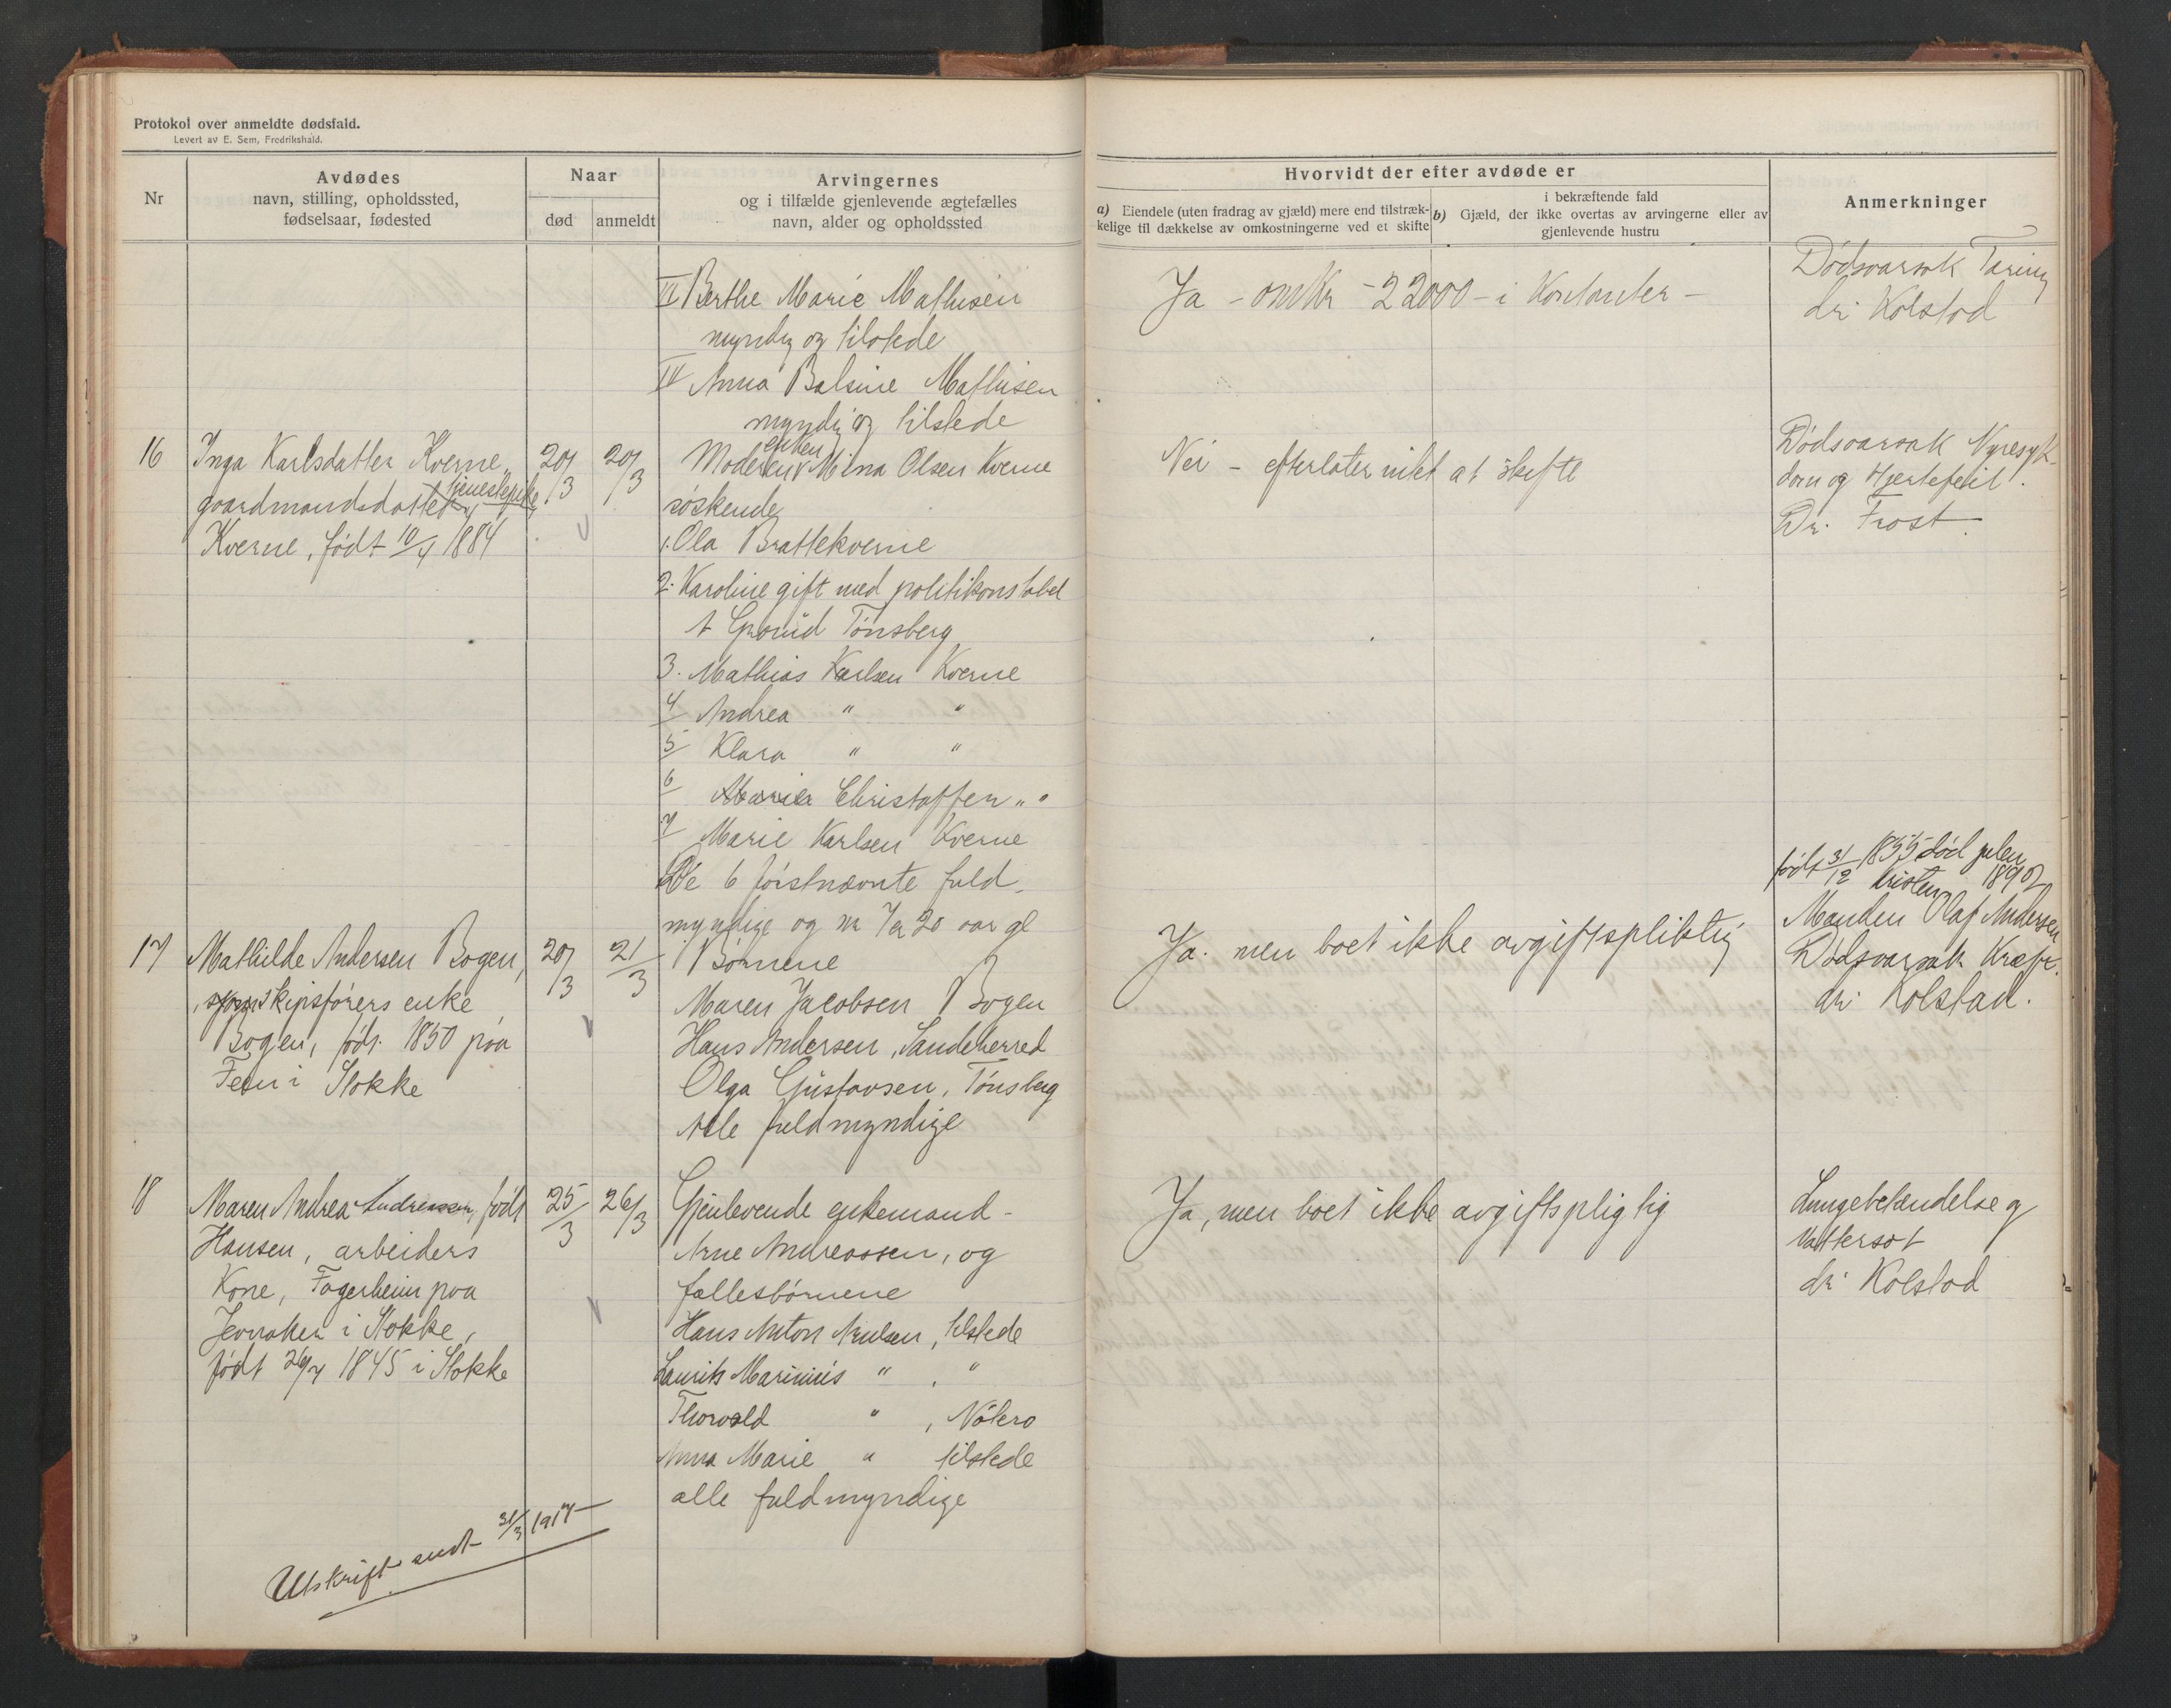 Protokol over anmeldte dødsfald.
Levert av E. Sem, Fredrikshald.
Nr
Avdødes
navn, stilling, opholdssted,
fødselsaar, fødested
Naar
død
anmeldt
Arvingernes
og i tilfælde gjenlevende ægtefælles
navn, alder og opholdssted
III Berthe Marie Mathisen
myndig og tilstede
IV Anna Balsine Mathisen
myndig og tilstede
16
Inga Karlsdatter Kverne,
gaardmandsdatter tjenestepike,
Kverne, født 10/4 1884
20/3
20/3
enken
Moderen Mina Olsen Kverne
søskende
1. Ola Brattekverne
2. Karoline gift med politikonstabel
A Tønsberg
3. Mathias Karlsen Kverne
4 Andrea " "
5 Klara " "
6 Christoffer " "
7 Marie Karlsen Kverne
De 6 førstnævnte fuld-
myndige og nr 7 er 20 aar gl
17
Mathilde Andersen Bogen,
skipsførers enke
Bogen, født 1850 paa
Feen i Stokke
20/3
21/3
Børnene
Maren Jacobsen Bogen
Hans Andersen, Sandeherred
Olga Gustavsen, Tønsberg
Alle fuldmyndige
18
Maren Andrea Andreassen, født
Hansen, arbeiders
Kone, Fagerheim paa
Jevnaker i Stokke,
født 26/4 1845 i Stokke
25/3
26/3
Gjenlevende enkemand -
Arne Andreassen, og
fællesbørnene
Hans Anton Arnesen, tilstede
Laurits Marinius " , "
Thorvald " , Nøtterø
Anna Marie " tilstede
alle fuldmyndige
Utskrift sendt 31/3 1917
Hvorvidt der efter avdøde er
a) Eiendele (uten fradrag av gjæld) mere end tilstræk-
kelige til dækkelse av omkostningerne ved et skifte
i bekræftende fald
b) Gjæld, der ikke overtas av arvingerne eller av
gjenlevende hustru
Anmerkninger
Ja - omkr - 22000 - i Kontanter -
Dødsaarsak Tæring
dr. Kolstad
Nei - efterlater intet at skifte
Dødsaarsak Nyresyk-
dom og Hjertefeil.
Dr. Frost.
Ja. men boet ikke avgiftspliktig
født 31/12 1855 død julen
1890
Manden Olaf Andersen
Dødsaarsak Kræft.
dr. Kolstad.
Ja, men boet ikke avgiftspligtig
Lungebetændelse og
Vattersot
dr. Kolstad